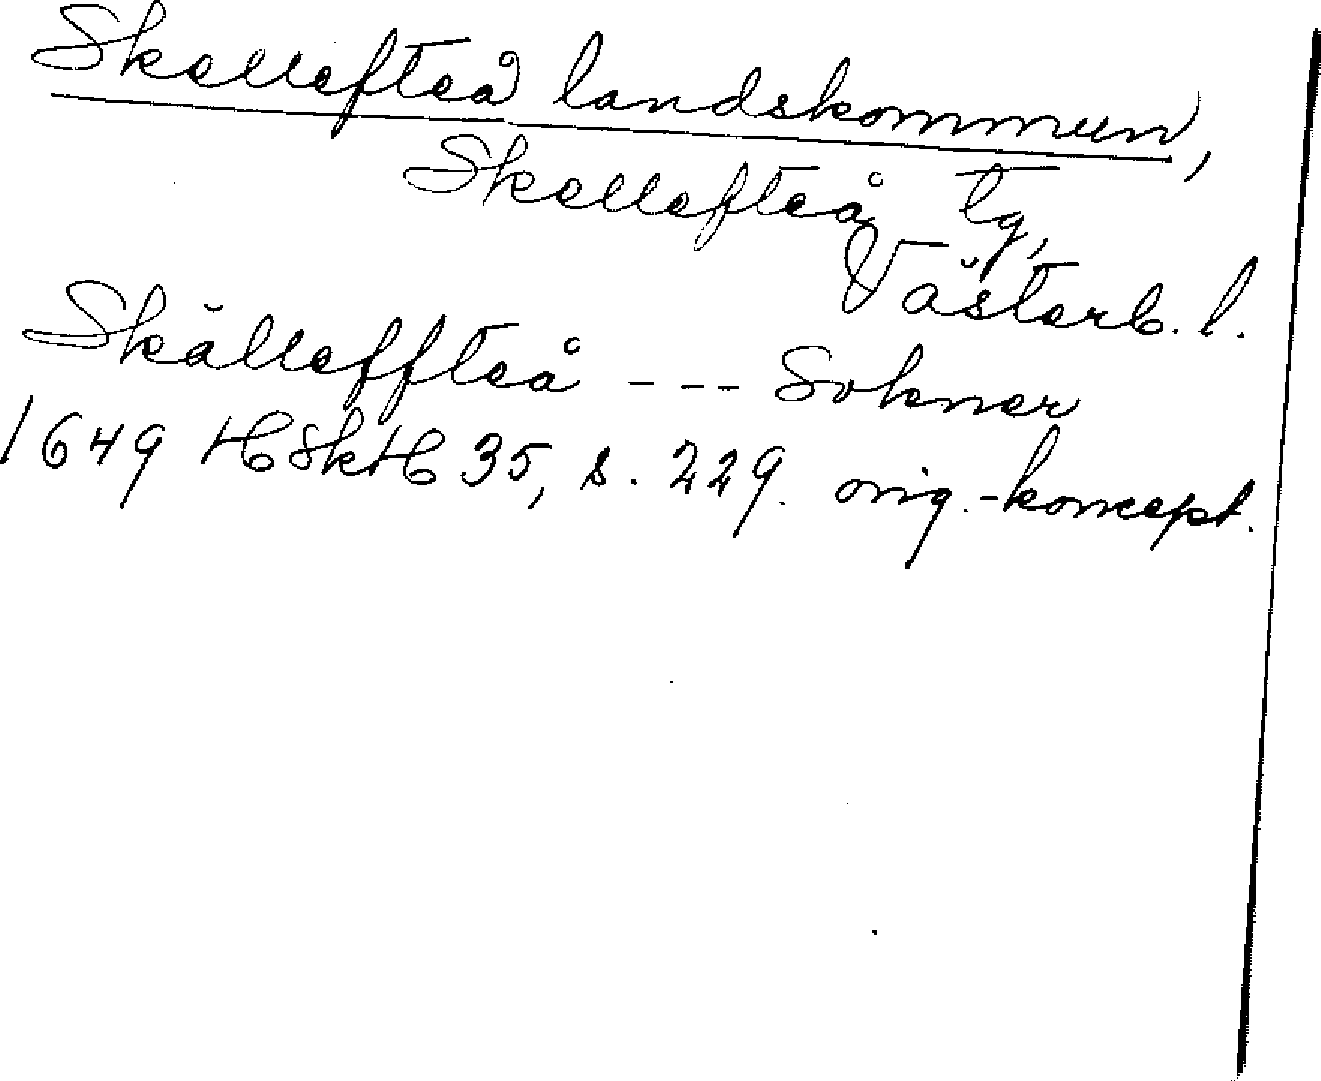 Skellefteå landskommun,
Skellefteå tg,
Västerb. l.
Skälleffteå --- Sokner
1649 HSkH 35, s. 229. orig.-koncept.